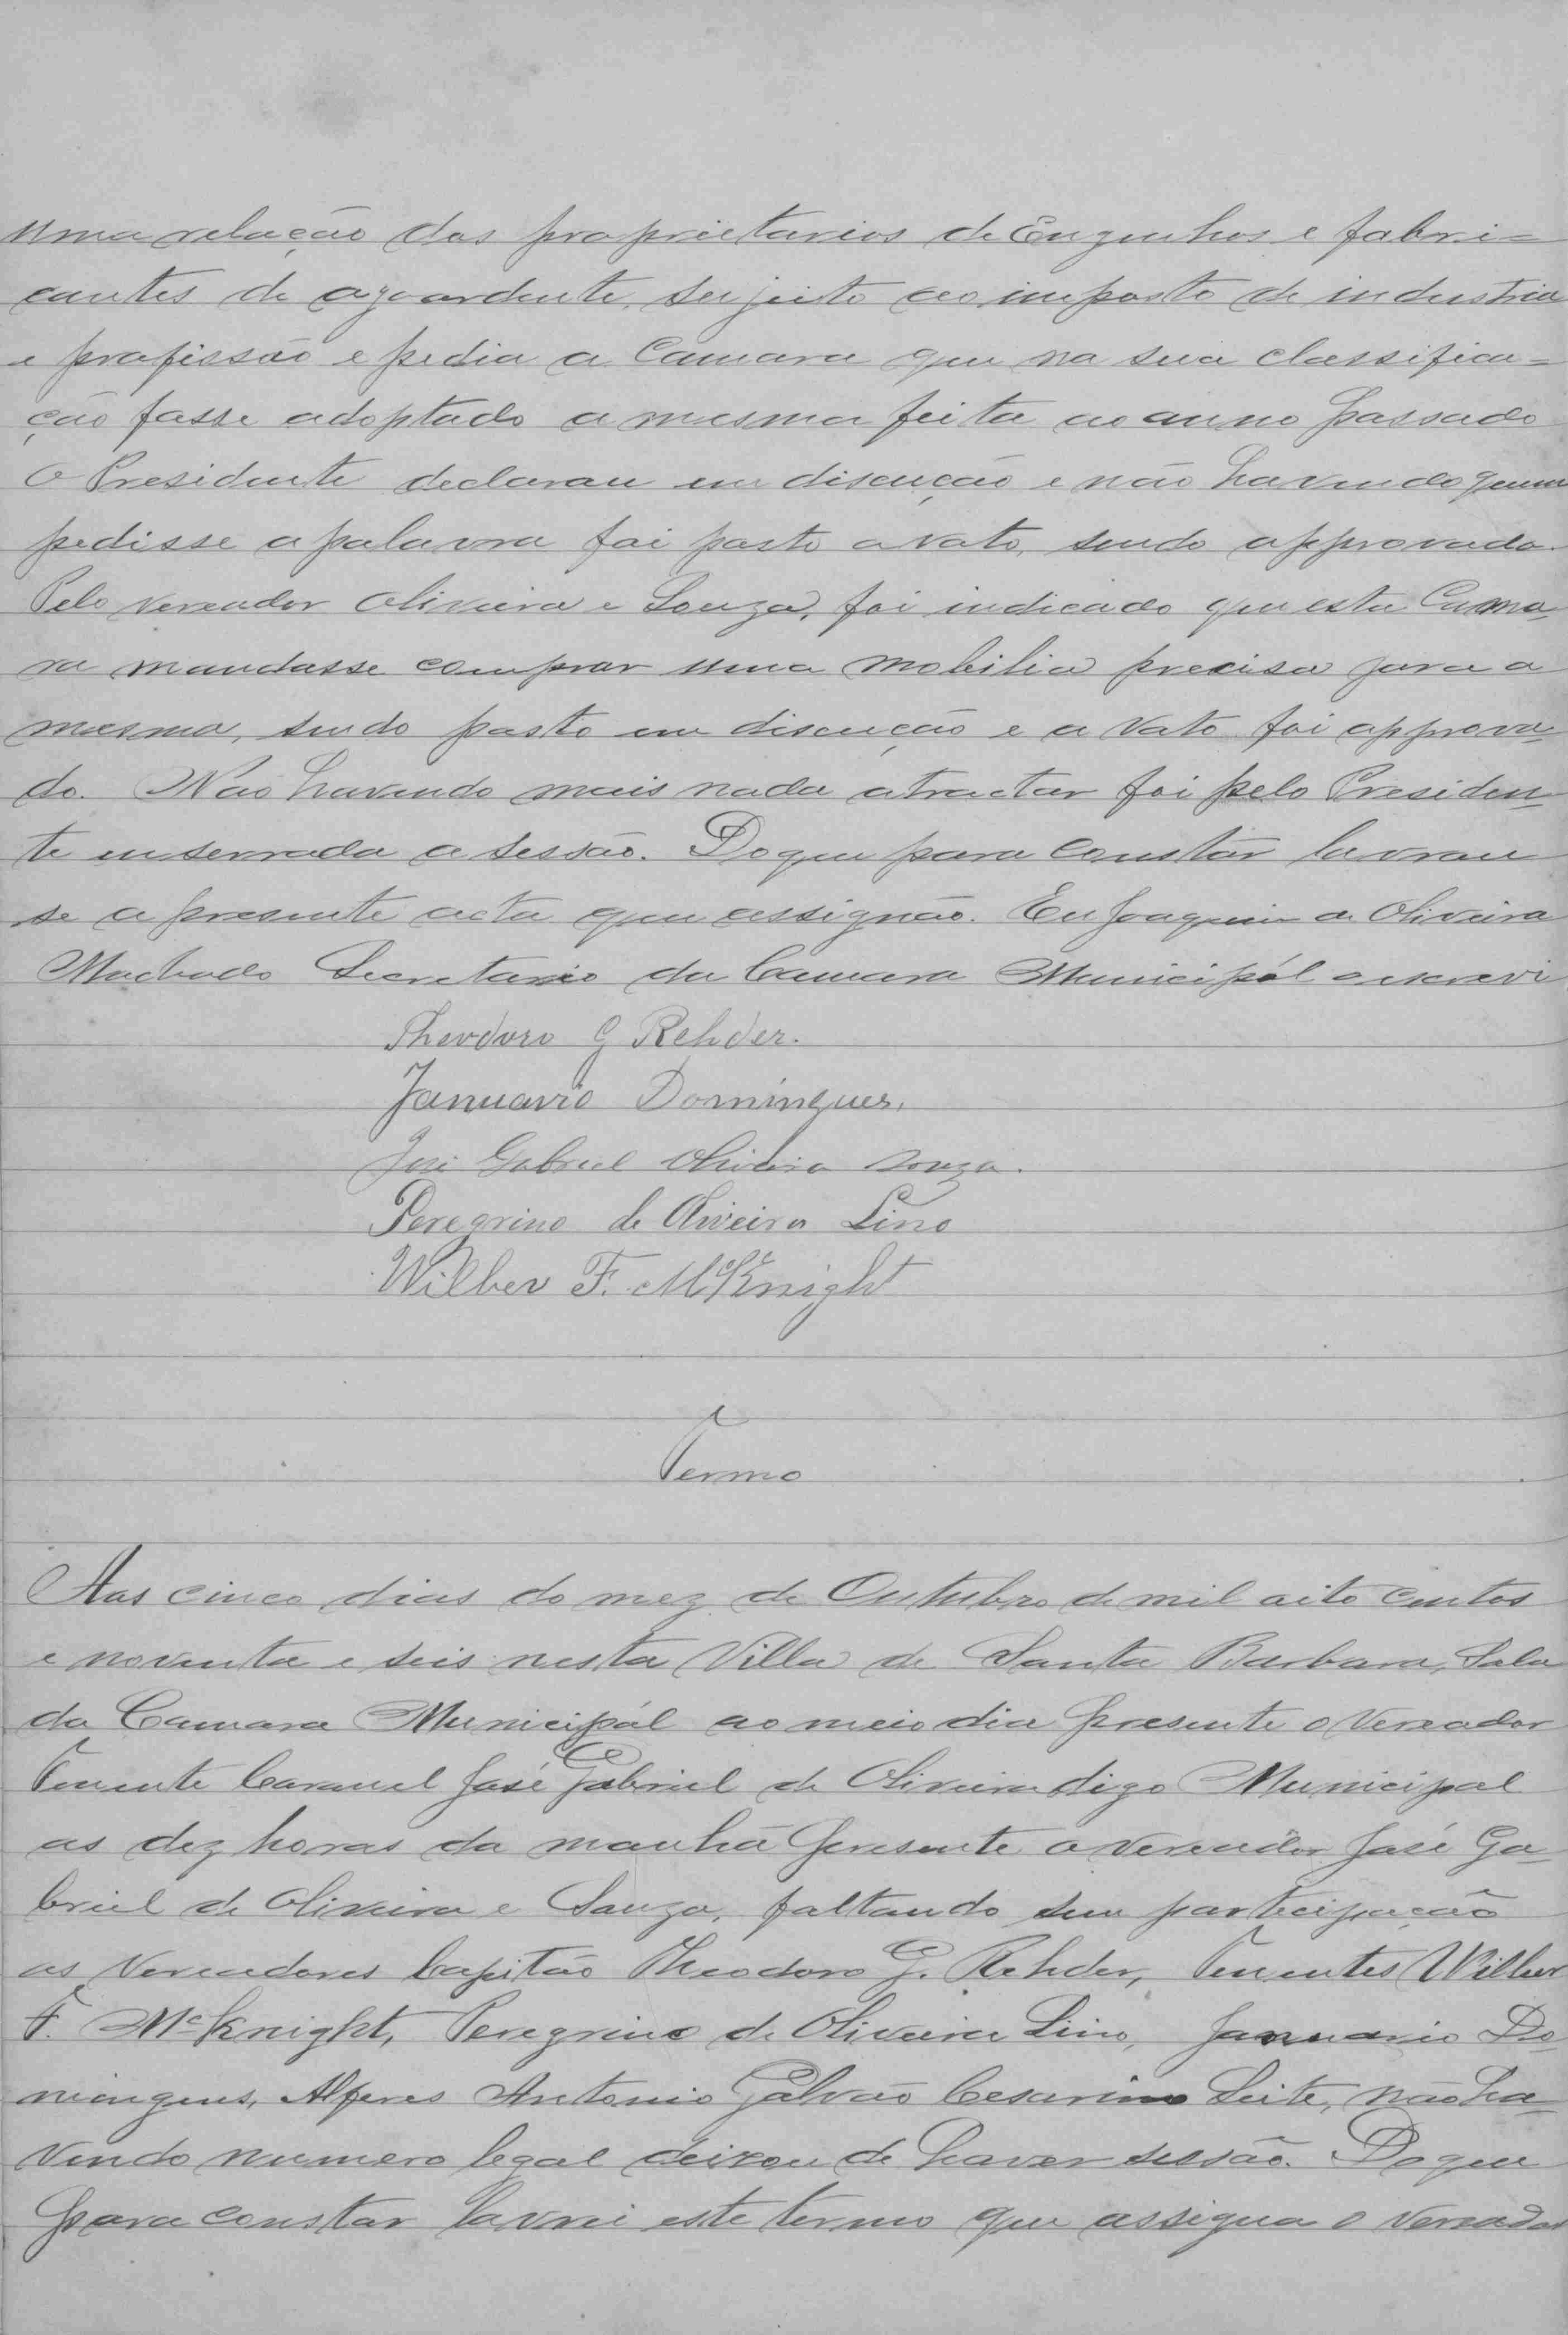 uma relação dos proprietarios de Engenhos e fabri=
cantes de agoardente, sujeito ao imposto de industria
e profissão e pedia a Camara que na sua classifica=
ção fosse adoptado a mesma feita ao anno passado
O Presidente declarou em discução e não havendo quem
pedisse a palavra foi posto a voto, sendo approvado.
Pelo vereador Oliveira e Souza, foi indicado que esta Cama-
ra mandasse comprar uma mobilia precisa para a
mesma, sendo posto em discução e a voto foi approva-
do. Não havendo mais nada a tractar foi pelo Presiden-
te enserrada a sessão. Do que para constár lavrou
se a presente acta que assignão. Eu Joaquim de Oliveira
Machado Secretario da Camara Municipál o escrevi
Theodoro G Rehder.
Januario Domingues.
José Gabriel Oliveira Souza.
Peregrino de Oliveira Lino
Wilber F. McKnight
Termo
Aos cinco dias do mez de Outubro de mil oito centos
e noventa e seis nesta Villa de Santa Barbara, Sala
da Camara Municipál ao meio dia presente o Vereador
Tenente Coronel José Gabriel de Oliveira digo Municipal
as dez horas da manhã presente o vereador José Ga-
briel de Oliveira e Souza, faltando sem participação
os Vereadores Capitão Theodoro G. Rehder, Tenentes Wilber
F. McKnight, Peregrino de Oliveira Lino, Januario Do-
mingues, Alferes Antonio Galvão Cesarino Leite, não ha-
vendo numero legal deixou de haver sessão. Do que
para constar lavrei este termo que assigna o vereador